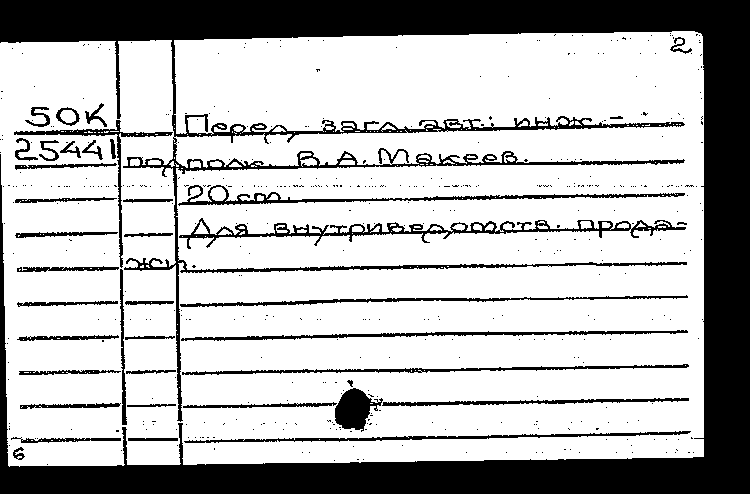 2
50К
Перед загл. авт.: инж.-
25441
подполк. В.А. Макеев.
20 см.
Для внутриведомств. прода-
жи.
6